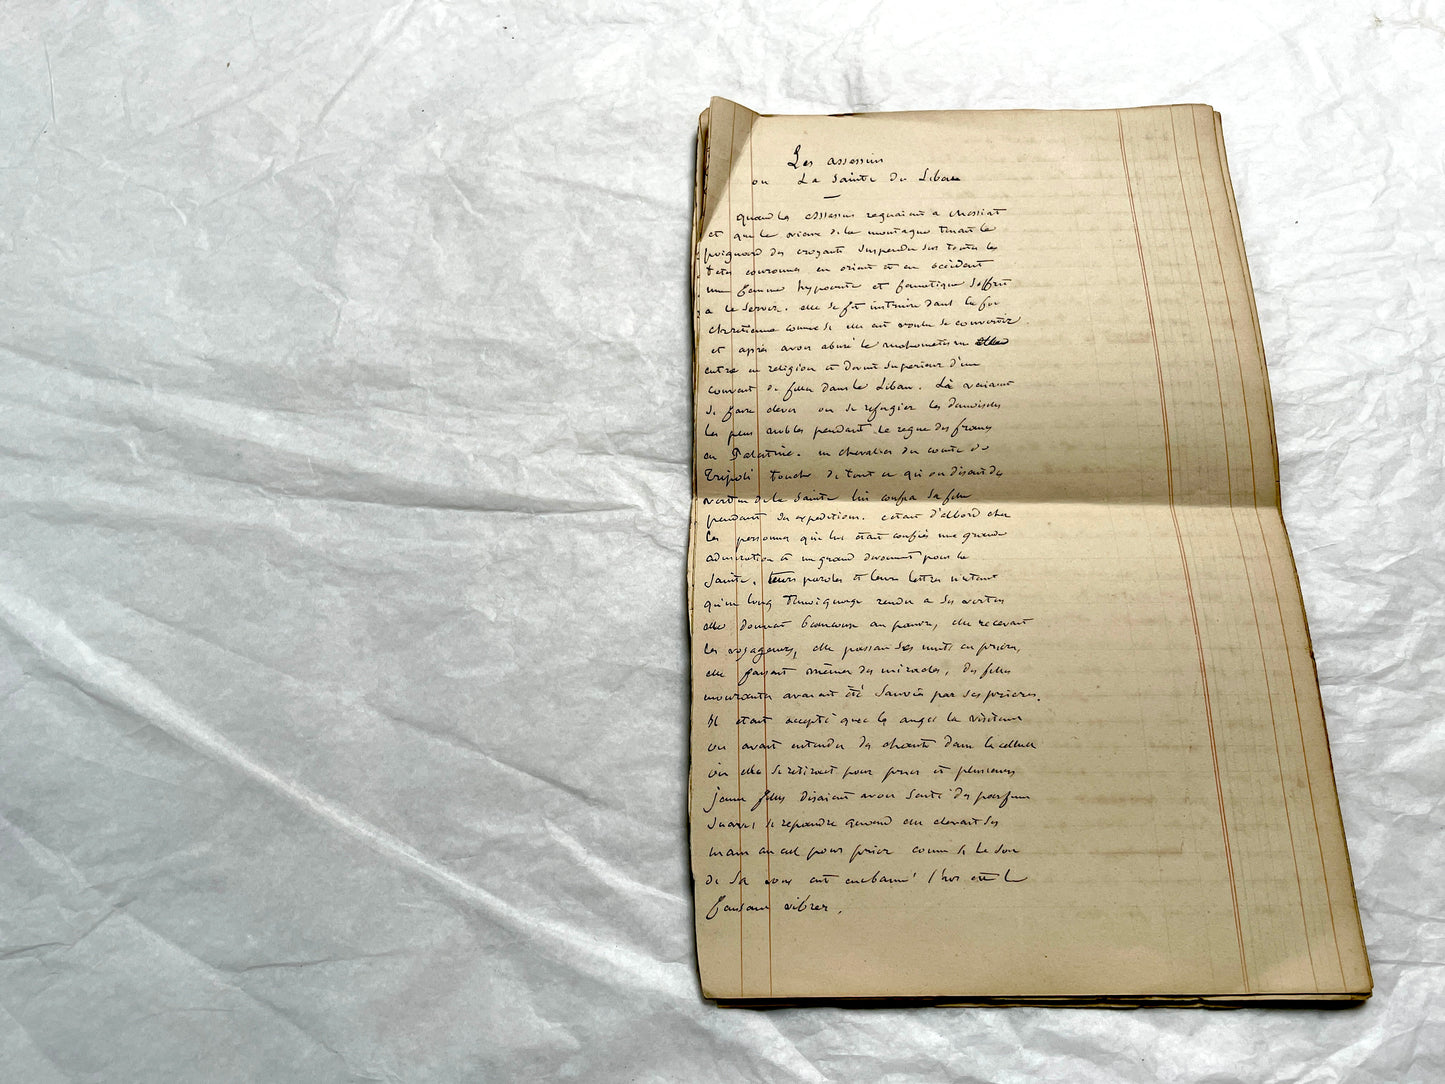 Les assassins
ou La Sainte du Liban
quand les assassins regnaient a
et que le vieux de la montagne tenait le
poignard des croyants suspendu sur toutes les
tetes couronnes en orient et en occident
une femme hypocrite et fanatique s'offrit
a le servir. elle se fit instruire dans la foi
chretienne comme si elle eut voulu se convertir
et après avoir abusé le
entre en religion et devint superieur d'un
couvent de filles dans le Liban. Là venaient
se faire elever ou se refugier les demoiselles
les plus nobles pendant le regne des francs
en Palestine. un chevalier du comte de
Tripoli touché de tout ce qui on disait des
vertus de la Sainte lui confia sa fille
pendant ses expeditions. c'etait d'abord chez
les personnes qui lui etait confiés une grande
admiration et un grand devouement pour la
Sainte. leurs paroles et leurs lettres n'etait
qu'un long temoignage rendu a ses vertus
elle donnait beaucoup au pauvre, elle recevait
les voyageurs, elle passait ses nuits en prieres,
elle faisait mêmes des miracles, des filles
mourantes avaient été sauvés par ses prieres.
Il etait accepté que les anges la visitaient
on avait entendu des chants dans la cellule
où elle se retirait pour prier et plusieurs
jeunes filles disaient avoir senti des parfums
suaves se repandre quand elle elevait ses
mains au ciel pour prier comme si le son
de sa voix eut embaumé l'air en le
faisant vibrer.